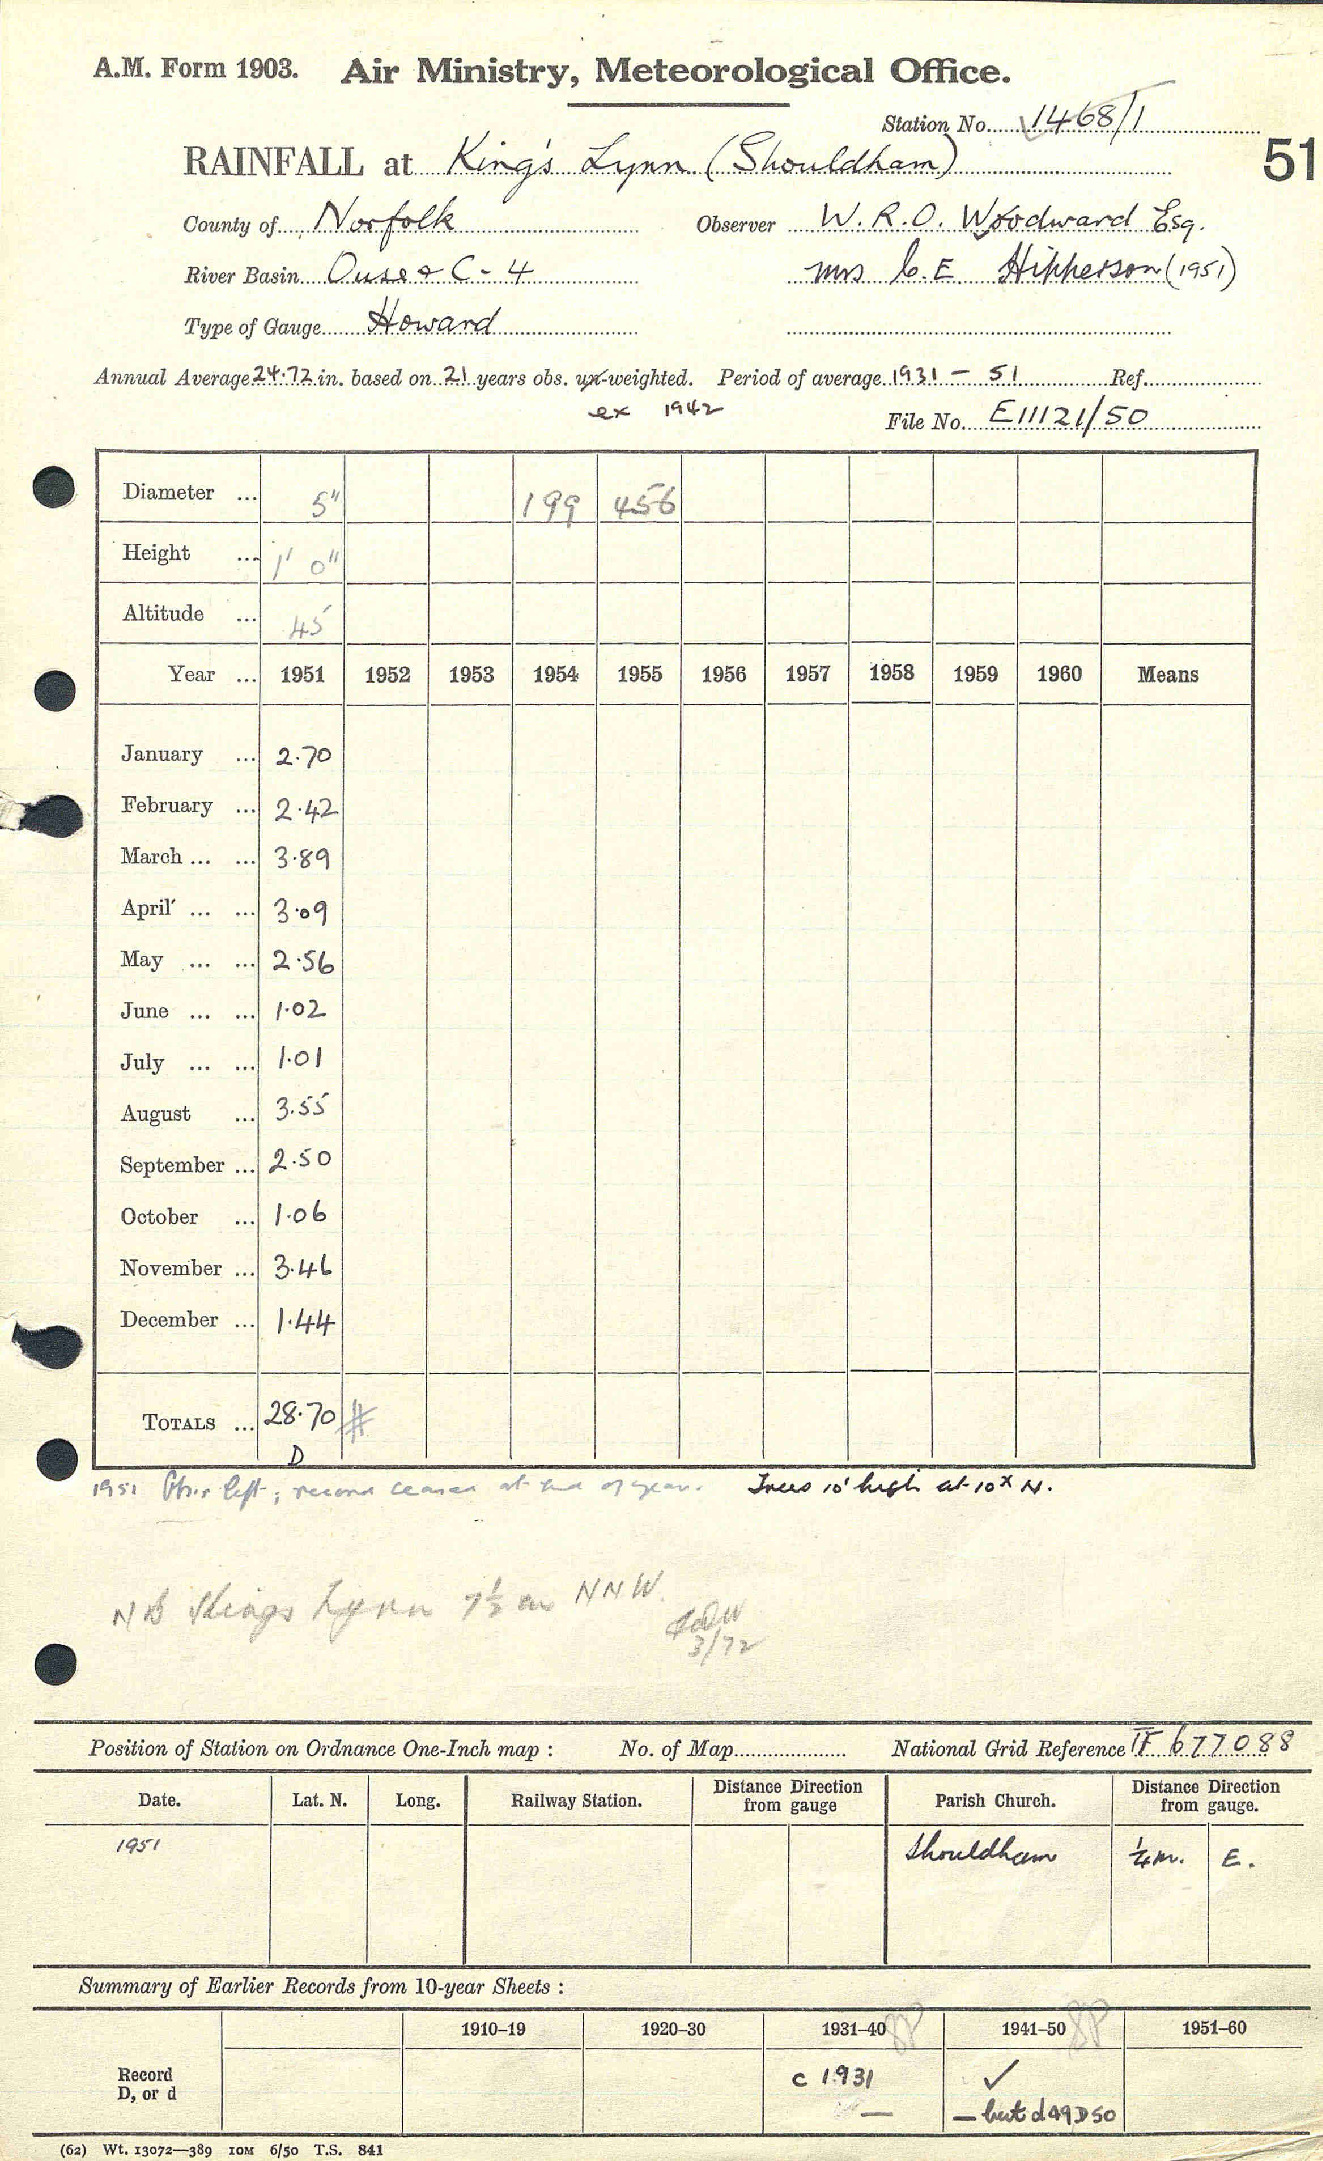 A.M. Form 1903. Air Ministry, Meteorological Office.
Station No. 1468/1
51
RAINFALL at King's Lynn (Shouldham)
County of Norfolk Observer W.R.O. Woodward Esq.
River Basin Ouse & C-4 Mrs C.E. Hipperson (1951)
Type of Gauge Howard
Annual Average 24.72 in. based on 21 years obs. un-weighted. Period of average 1931 - 51 Ref.
ex 1942
File No. E11121/50
Diameter ... 5" 199 456
Height ... 1' 0"
Altitude ... 45
Year ... 1951 1952 1953 1954 1955 1956 1957 1958 1959 1960 Means
January ... 2.70
February ... 2.42
March ... ... 3.89
April ... ... 3.09
May ... ... 2.56
June ... ... 1.02
July ... ... 1.01
August ... 3.55
September ... 2.50
October ... 1.06
November ... 3.46
December ... 1.44
TOTALS ... 28.70 #
D
1951 Obsr left; record ceased at end of year. Trees 10' high at 10x N.
NB Kings Lynn 7½ m NNW.
3/72
Position of Station on Ordnance One-Inch map : No. of Map National Grid Reference TF 677088
Date. Lat. N. Long. Railway Station. Distance Direction from gauge Parish Church. Distance Direction from gauge.
1951 Shouldham ¼ m. E.
Summary of Earlier Records from 10-year Sheets :
1910-19 1920-30 1931-40 1941-50 1951-60
Record c 1931 ✓
D, or d — — but d49 D50
(62) Wt. 13072—389 10M 6/50 T.S. 841